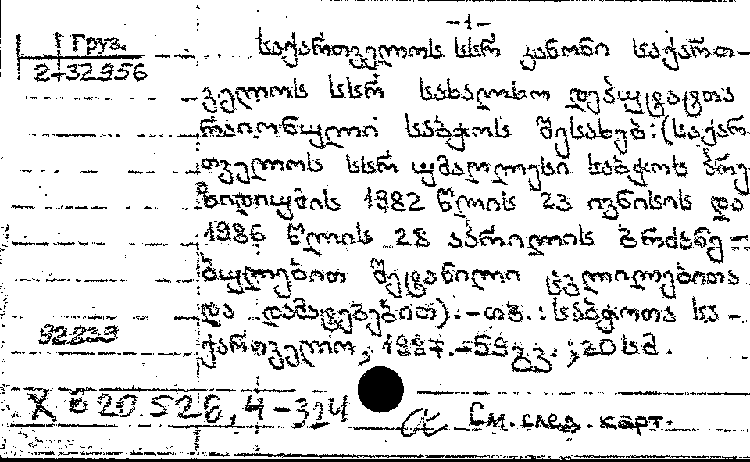 -1-
Груз.
2-32956
საქართველოს სსრ კანონი საქართ-
ველოს სსრ სახალხო დეპუტატთა
რაიონული საბჭოს შესახებ: (საქარ
თველოს სსრ უმაღლესი საბჭოს პრე
ზიდიუმის 1982 წლის 23 ივნისის და
1986 წლის 28 აპრილის ბრძანე-
ბულებით შეტანილი ცვლილებითა
და დამატებებით).-თბ.: საბჭოთა სა-
92239
ქართველო, 1987.-59 გვ.; 20 სმ.
X 620 526, 4-324
См. след. карт.